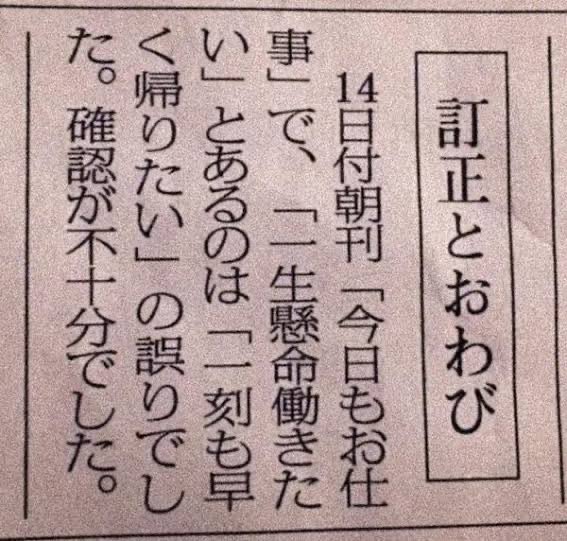 訂正とおわび
14日付朝刊「今日もお仕
事」で、「一生懸命働きた
い」とあるのは「一刻も早
く帰りたい」の誤りでし
た。確認が不十分でした。